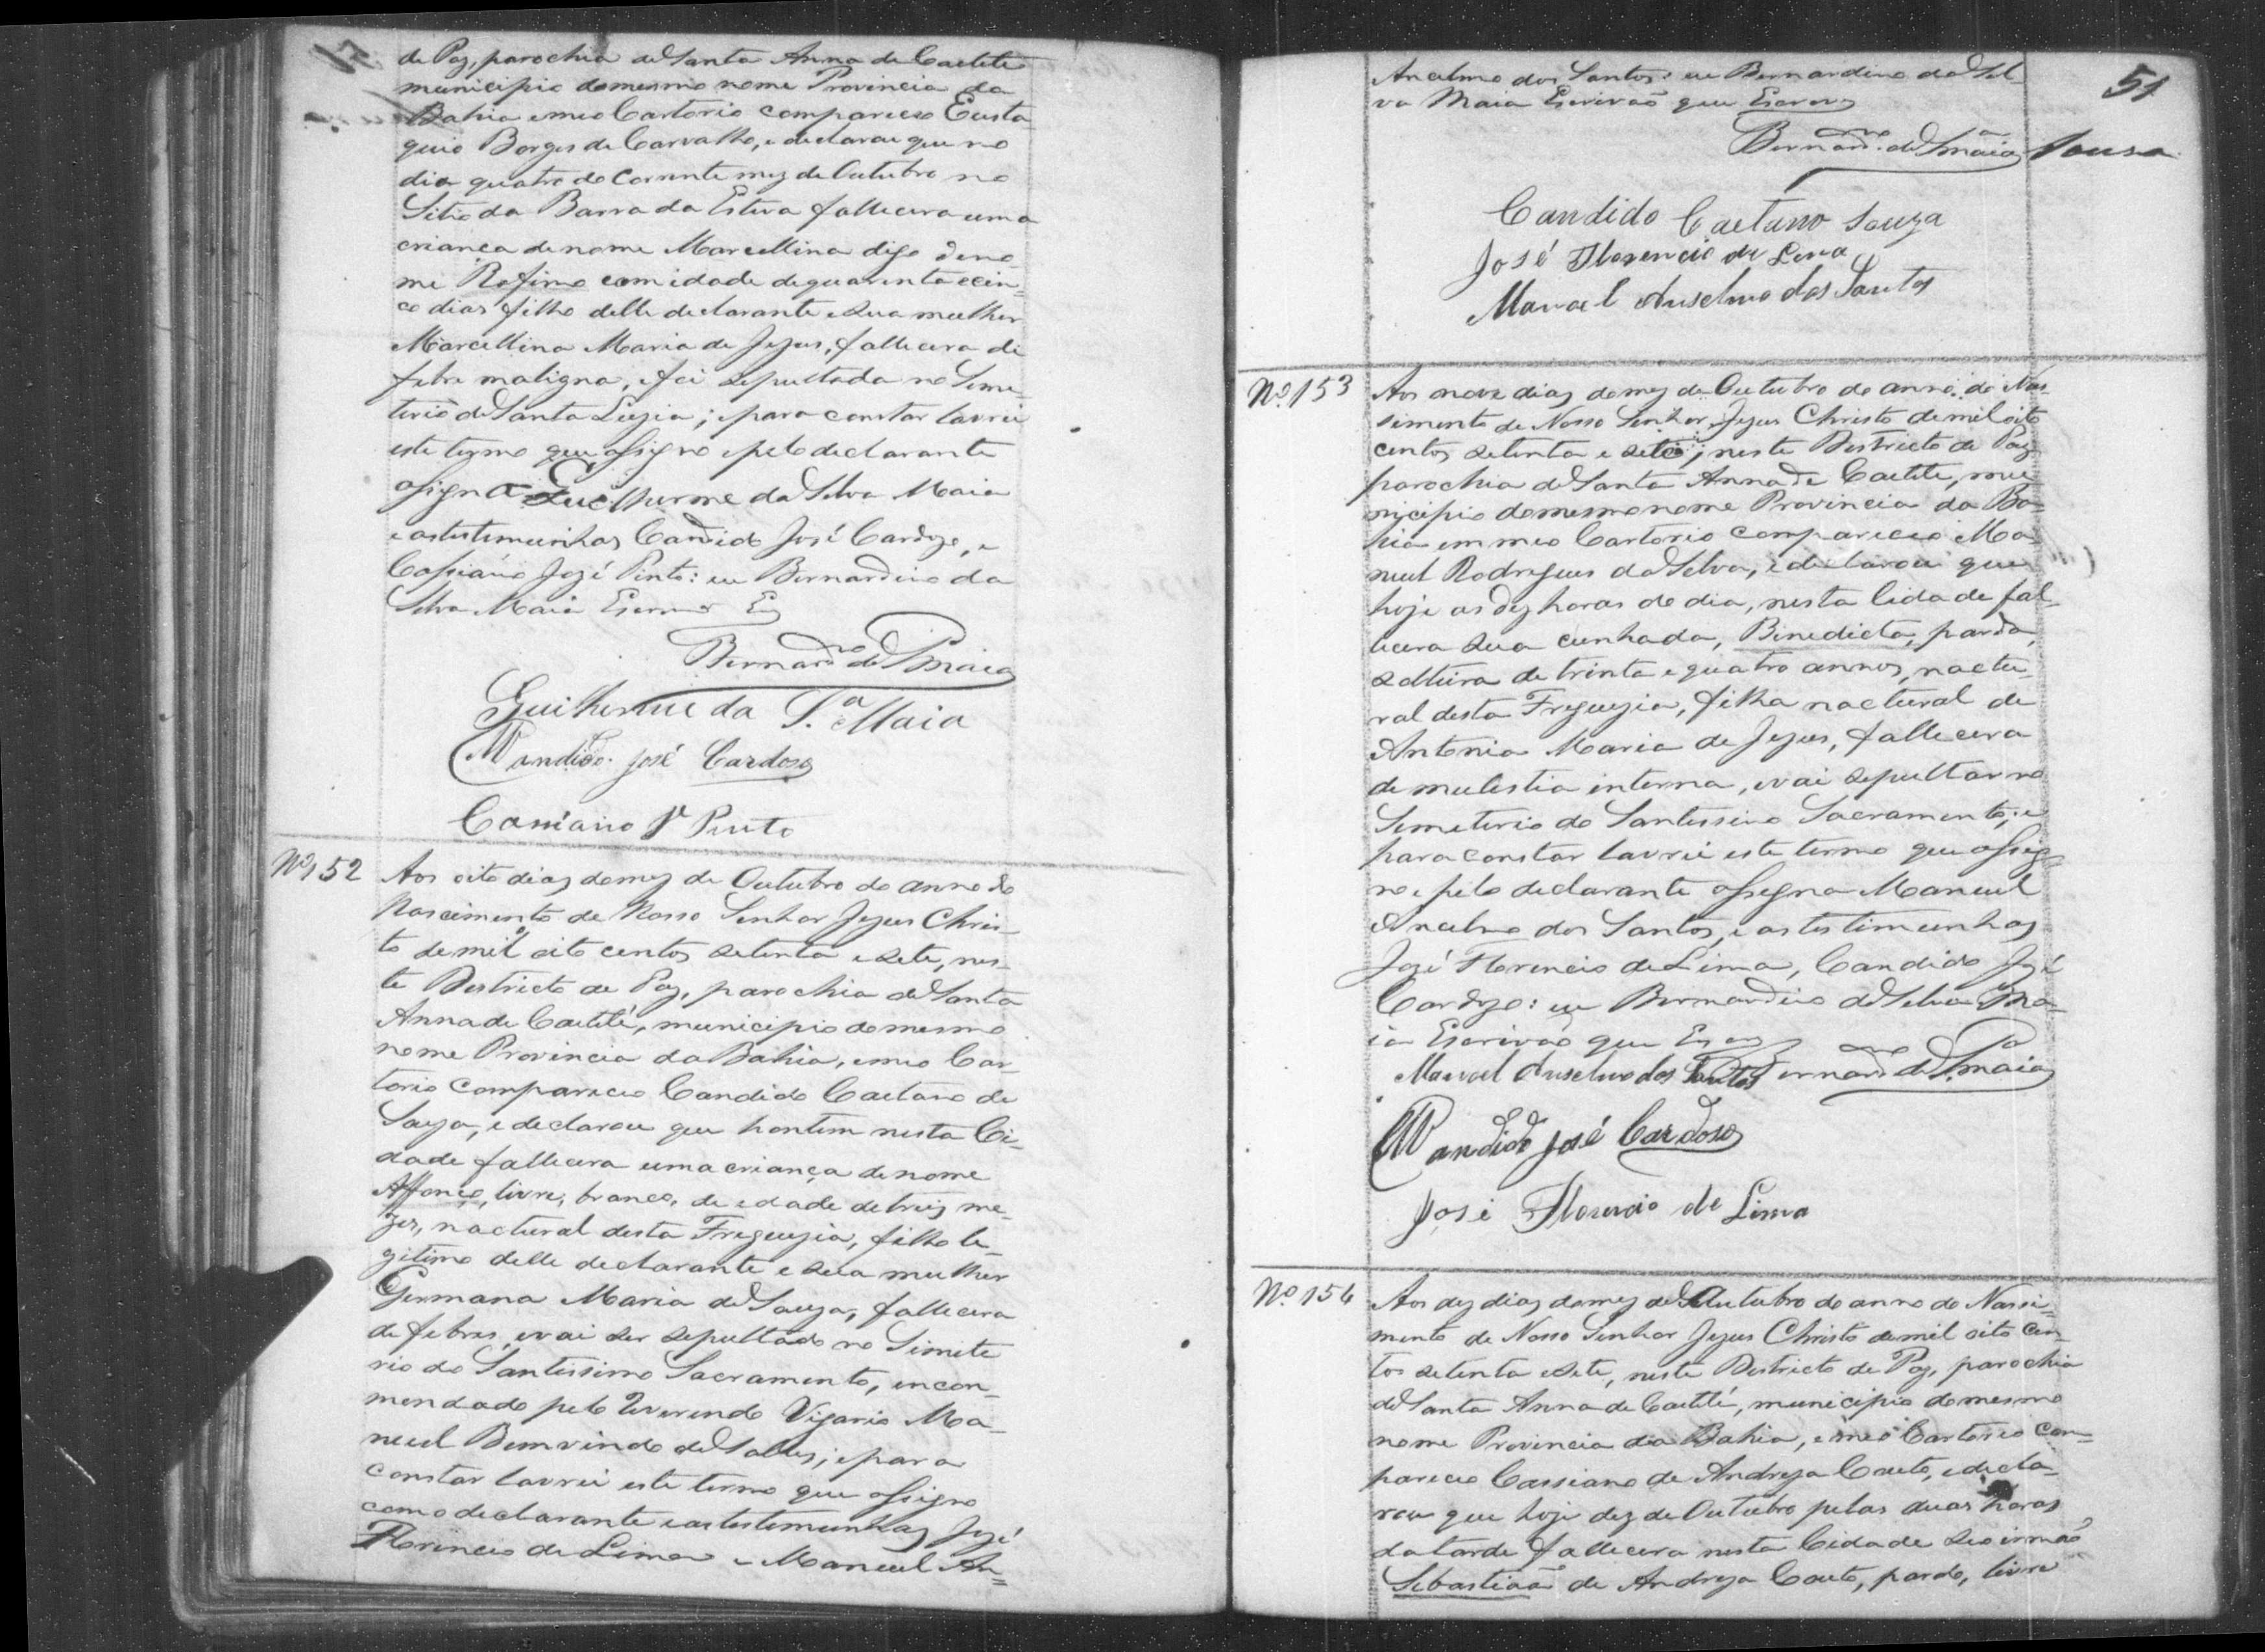 de Paz, parochia de Santa Anna de Caetite
municipio do mesmo nome Provincia da
Bahia e meo Cartorio compareceo Eusta-
quio Borges de Carvalho, e declarou que no
dia quatro do corrente mez de Outubro no
Sitio da Barra da Esteva fallecera uma
criança de nome Marcellina digo de no-
me Rofino com idade de quarenta e cin-
co dias filho delle declarante e sua mulher
Marcellina Maria de Jezus, fallecera de
febre maligna, e foi sepultada no Seme-
terio de Santa Luzia; e para constar lavrei
este termo que assigno e pelo declarante
assigna Guilherme da Silva Maia
e as testimunhas Candido José Cardozo, e
Cassiano Jozé Pinto: eu Bernardino da
Silva Maia
Bernard.no da S.a Maia
Guilherme da S.a Maia
Candido José Cardoso
Cassiano J.e Pinto
Nº 152 Aos oito dias do mez de Outubro do anno do
Nascimento de Nosso Senhor Jezus Chris-
to de mil oito centos setenta e sete, nes-
te Destricto de Paz, parochia de Santa
Anna de Caetité, municipio do mesmo
nome Provincia da Bahia, e meo Car-
torio compareceo Candido Caetano de
Souza, e declarou que hontem nesta Ci-
dade fallecera uma criança de nome
Affonço, livre, branco, de edade de treis me-
zes, nactural desta Freguezia, filho le-
gitimo delle declarante e sua mulher
Germana Maria de Souza, fallecera
de febres, e vai ser sepultado no Simete
rio do Santissimo Sacramento, encon-
mendado pelo Reverendo Vigario Ma-
nuel Bemvindo de Salles; e para
constar lavrei este termo que assigno
com o declarante e as testimunhas Jozé
Florencio de Lima e Manuel An=
51
Ancelmo dos Santos: eu Bernardino da Sil
va Maia Escrivão que Escrevy
Bernard.no da S.a Maia
Sousa
Candido Caetano Souza
José Florencio de Lima
Manoel Anselmo dos Santos
Nº 153 Aos nove dias do mez de Outubro do anno do Nas-
simento de Nosso Senhor Jezus Christo de mil oito
centos setenta e sete; neste Destricto de Paz
parochia de Santa Anna de Caetite, mu-
nicipio do mesmo nome Provincia da Ba-
hia em meo Cartorio compareceo Ma-
nuel Rodrigues da Silva, e declarou que
hoje as dez horas do dia, nesta Cidade fal-
lecera sua cunhada, Benedicta, parda,
solteira de trinta e quatro annos, nactu-
ral desta Freguezia, filha nactural de
Antonia Maria de Jezus, fallecera
de mulestia interna, e vai sepultar no
Semeterio do Santissimo Sacramento; e
para constar lavrei este termo que assig-
no e pelo declarante assigna Manuel
Ancelmo dos Santos, e as testimunhas
Jozé Florencio de Lima, Candido Jozé
Cardozo: eu Bernardino da Silva Ma-
ia Escrivão que
Manoel Anselmo dos Santos Bernard.no da S.a Maia
Candido José Cardoso
José Florencio de Lima
Nº 154 Aos dez dias do mez de Outubro do anno do Nassi-
mento de Nosso Senhor Jezus Christo de mil oito cen-
tos setenta e sete, neste Destricto de Paz, parochia
de Santa Anna de Caetité, municipio do mesmo
nome Provincia da Bahia, e meo Cartorio com-
pareceo Cassiano de Andreza Couto, e decla-
rou que hoje dez de Outubro pelas duas horas
da tarde fallecera nesta Cidade seo irmão
Sebastião de Andreza Couto, pardo, livre